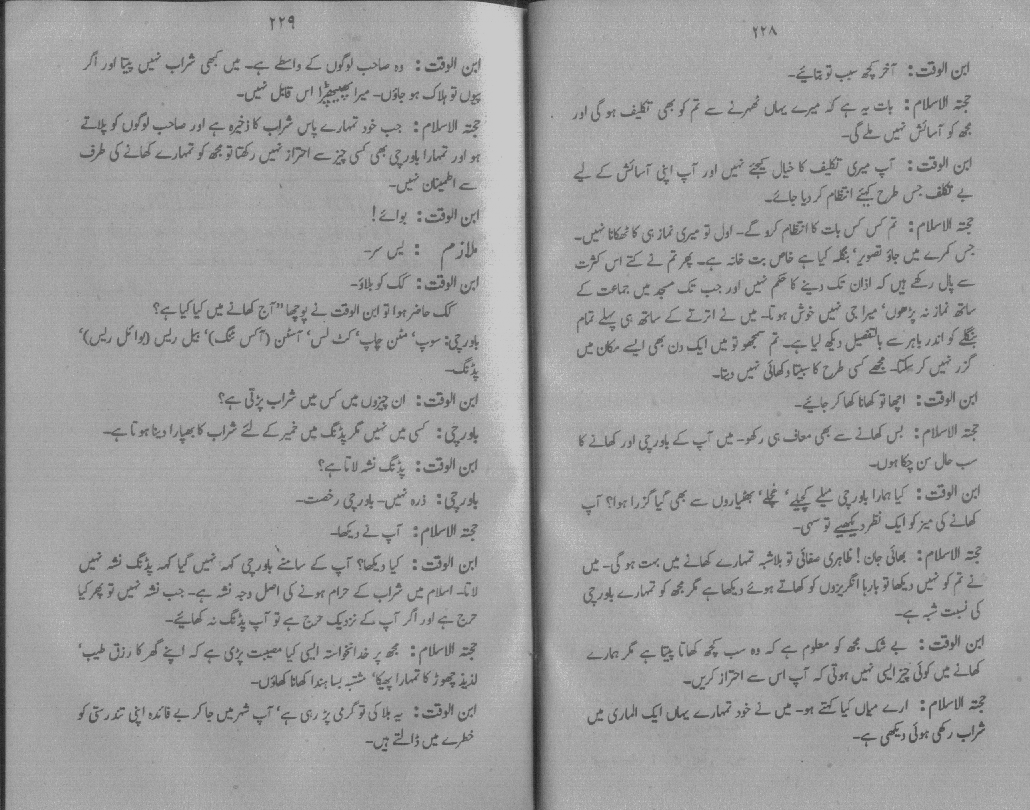 ۲۲۸
ابن الوقت: آخر کچھ سبب تو بتایئے۔
حجتہ الاسلام: بات یہ ہے کہ میرے یہاں ٹھہرنے سے تم کو بھی تکلیف ہو گی اور
مجھ کو آسائش نہیں ملے گی۔
ابن الوقت: آپ میری تکلیف کا خیال کیجئے نہیں اور آپ اپنی آسائش کے لیے
بے تکلف جس طرح کہیئے انتظام کر دیا جائے۔
حجتہ الاسلام: تم کس کس بات کا انتظام کرو گے۔ اول تو میری نماز ہی کا ٹھکانا نہیں۔
جس کمرے میں جاؤ تصویر‘ بنگلہ کیا ہے خاص بت خانہ ہے۔ پھر تم نے کتے اس کثرت
سے پال رکھے ہیں کہ اذان تک دینے کا حکم نہیں اور جب تک مسجد میں جماعت کے
ساتھ نماز نہ پڑھوں‘ میرا جی نہیں خوش ہوتا۔ میں نے اترتے کے ساتھ ہی پہلے تمام
بنگلے کو اندر باہر سے بالتفصیل دیکھ لیا ہے۔ تم سمجھو تو میں ایک دن بھی ایسے مکان میں
گزر نہیں کر سکتا۔ مجھے کسی طرح کا سبیتا دکھائی نہیں دیتا۔
ابن الوقت: اچھا تو کھانا کھا کر جایئے۔
حجتہ الاسلام: بس کھانے سے بھی معاف ہی رکھو۔ میں آپ کے باورچی اور کھانے کا
سب حال سن چکا ہوں۔
ابن الوقت: کیا ہمارا باورچی میلے کچیلے‘ غچلے‘ بھٹیاروں سے بھی گیا گزرا ہوا؟ آپ
کھانے کی میز کو ایک نظر دیکھیے تو سہی۔
حجتہ الاسلام: بھائی جان! ظاہری صفائی تو بلاشبہ تمہارے کھانے میں بہت ہو گی۔ میں
نے تم کو نہیں دیکھا تو بارہا انگریزوں کو کھاتے ہوئے دیکھا ہے مگر مجھ کو تمہارے باورچی
کی نسبت شبہ ہے۔
ابن الوقت: بے شک مجھ کو معلوم ہے کہ وہ سب کچھ کھاتا پیتا ہے مگر ہمارے
کھانے میں کوئی چیز ایسی نہیں ہوتی کہ آپ اس سے احتراز کریں۔
حجتہ الاسلام: ارے میاں کیا کہتے ہو۔ میں نے خود تمہارے یہاں ایک الماری میں
شراب رکھی ہوئی دیکھی ہے۔
۲۲۹
ابن الوقت: وہ صاحب لوگوں کے واسطے ہے۔ میں کبھی شراب نہیں پیتا اور اگر
پیوں تو ہلاک ہو جاؤں۔ میرا پھیپھڑا اس قابل نہیں۔
حجتہ الاسلام: جب خود تمہارے پاس شراب کا ذخیرہ ہے اور صاحب لوگوں کو پلاتے
ہو اور تمہارا باورچی بھی کسی چیز سے احتراز نہیں رکھتا تو مجھ کو تمہارے کھانے کی طرف
سے اطمینان نہیں۔
ابن الوقت: بوائے!
ملازم : یس سر۔
ابن الوقت: کک کو بلاؤ۔
کک حاضر ہوا تو ابن الوقت نے پوچھا "آج کھانے میں کیا کیا ہے؟
باورچی: سوپ‘ مٹن چاپ‘ کٹ لس‘ آسٹن (آکس ٹنگ)‘ بیل ریس (بوائل ریس)‘
پڈنگ۔
ابن الوقت: ان چیزوں میں کس میں شراب پڑتی ہے؟
باورچی: کسی میں نہیں مگر پڈنگ میں خمیر کے لئے شراب کا بھپارا دینا ہوتا ہے۔
ابن الوقت: پڈنگ نشہ لاتا ہے؟
باورچی: ذرہ نہیں۔ باورچی رخصت۔
حجتہ الاسلام: آپ نے دیکھا۔
ابن الوقت: کیا دیکھا؟ آپ کے سامنے باورچی کہہ نہیں گیا کہ پڈنگ نشہ نہیں
لاتا۔ اسلام میں شراب کے حرام ہونے کی اصل وجہ نشہ ہے۔ جب نشہ نہیں تو پھر کیا
حرج ہے اور اگر آپ کے نزدیک حرج ہے تو آپ پڈنگ نہ کھایئے۔
حجتہ الاسلام: مجھ پر خدانخواستہ ایسی کیا مصیبت پڑی ہے کہ اپنے گھر کا رزق طیب‘
لذیذ چھوڑ کا تمہارا پھیکا‘ مشتبہ بساہندا کھانا کھاؤں۔
ابن الوقت: یہ بلا کی تو گرمی پڑ رہی ہے‘ آپ شہر میں جا کر بے فائدہ اپنی تندرستی کو
خطرے میں ڈالتے ہیں۔